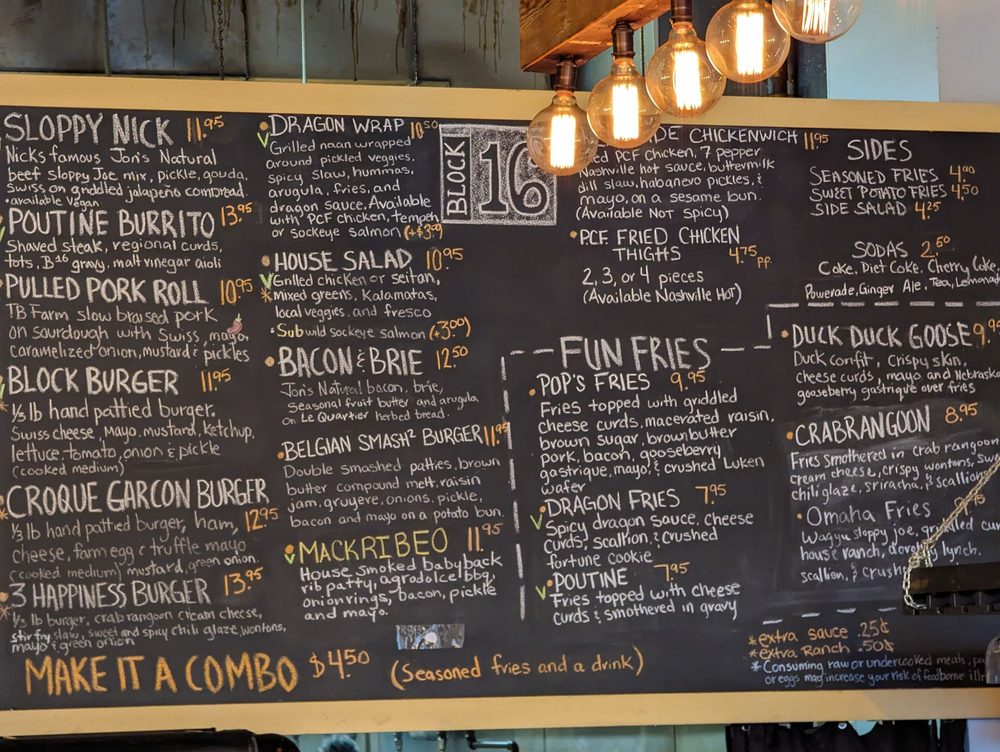 SLOPPY NICK 11.95
Nicks famous Jon's Natural
beef sloppy Joe mix, pickle, gouda,
Swiss on griddled jalapeño cornbread.
*available vegan
POUTINE BURRITO 13.95
Shaved steak, regional curds,
tots, B16 gravy, malt vinegar aioli
PULLED PORK ROLL 10.95
TB Farm slow braised pork
on sourdough with Swiss, mayo,
caramelized onion, mustard & pickles
BLOCK BURGER 11.95
1/3 lb hand pattied burger.
Swiss cheese, Mayo, mustard, ketchup,
lettuce, tomato, onion & pickle
(cooked medium)
CROQUE GARCON BURGER
1/3 lb hand pattied burger, ham, 12.95
cheese, farm egg & truffle mayo
(cooked medium) mustard, green onion
3 HAPPINESS BURGER 13.95
1/3 lb burger, crab rangoon cream cheese,
stir fry slaw, sweet and spicy chili glaze, wontons,
mayo & green onion
DRAGON WRAP 10.50
Grilled naan wrapped
around pickled veggies,
spicy slaw, hummas,
arugula, fries, and
dragon sauce. Available
with PCF chicken, tempeh
or sockeye salmon (+$3.00)
HOUSE SALAD 10.95
Grilled chicken or seitan,
mixed greens, Kalamatas,
local veggies, and fresco
*Sub wild sockeye salmon (+3.00)
BACON & BRIE 12.50
Jon's Natural bacon, brie,
Seasonal fruit butter and arugula
on Le Quartier herbed bread.
BELGIAN SMASH² BURGER 11.95
Double smashed patties, brown
butter compound melt, raisin
jam, gruyere, onions, pickle,
bacon and mayo on a potato bun.
MACKRIBEO 11.95
House smoked babyback
rib patty, agrodolce bbq,
onion rings, bacon, pickle
and mayo.
BLOCK 16
CHICKENWICH 11.95
PCF chicken, 7 pepper
Nashville hot sauce, buttermilk
dill slaw, habanero pickles, &
mayo, on a sesame bun.
(Available Not Spicy)
PCF FRIED CHICKEN
THIGHS 4.75 pp
2, 3, or 4 pieces
(Available Nashville Hot)
FUN FRIES
POP'S FRIES 9.95
Fries topped with griddled
cheese curds, macerated raisin,
brown sugar, brown butter
pork, bacon, gooseberry
gastrique, mayo, & crushed Luken
wafer
DRAGON FRIES 7.95
Spicy dragon sauce, cheese
curds, scallion, & crushed
fortune cookie
POUTINE 7.95
Fries topped with cheese
curds & smothered in gravy
SIDES
SEASONED FRIES 4.00
SWEET POTATO FRIES 4.50
SIDE SALAD 4.25
SODAS 2.50
Coke, Diet Coke, Cherry Coke,
Powerade, Ginger Ale, Tea, Lemonade
DUCK DUCK GOOSE 9.
Duck confit, crispy skin,
cheese curds, mayo and Nebraska
gooseberry gastrique over fries
CRABRANGOON 8.95
Fries smothered in crab rangoon
cream cheese, crispy wontons,
chili glaze, sriracha, & scallion
Omaha Fries 9.95
Wagyu sloppy joe, griddled
house ranch, dorothy lynch,
scallion, &
*extra sauce .25¢
*extra Ranch .50¢
*Consuming raw or undercooked meats,
or eggs may increase your risk of foodborne
MAKE IT A COMBO $4.50 (Seasoned fries and a drink)